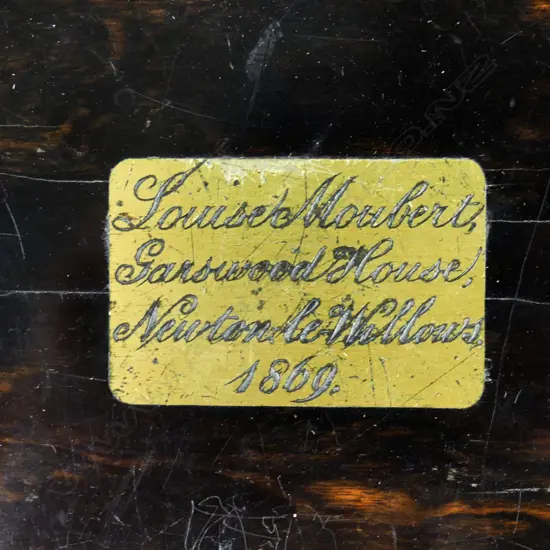 Louise Moubert,
Garswood House,
Newton le Willows,
1869.